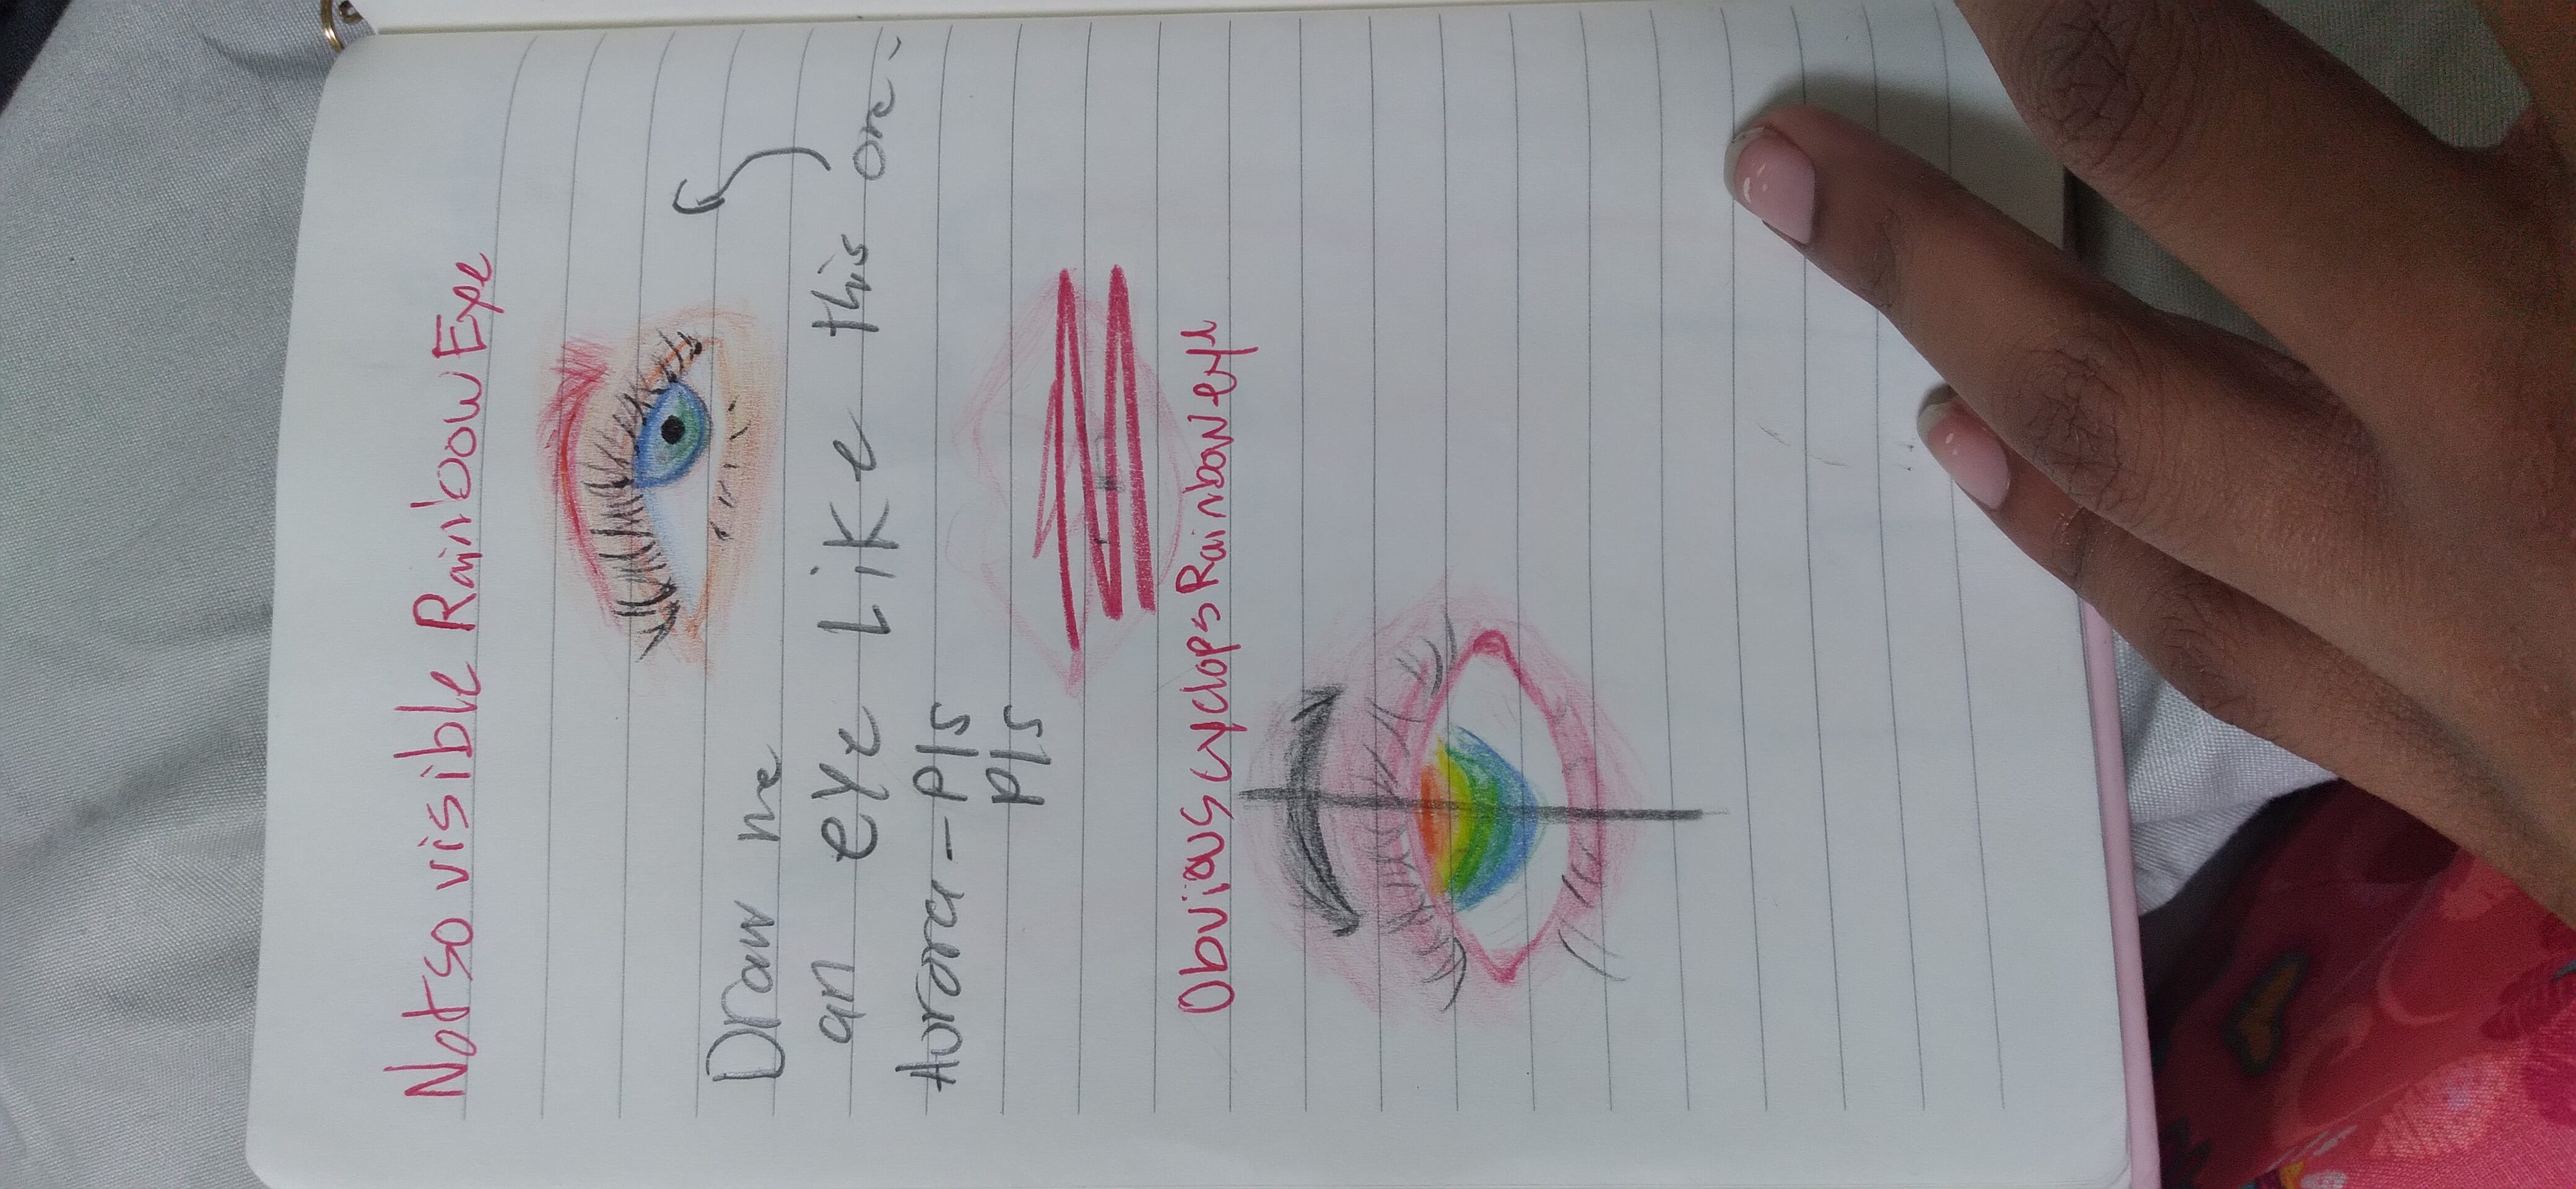 Not so visible Rainbow Eye
Draw me
an eye Like this one -
Aurora - Pls
Pls
Obvious cyclops Rainbow eye